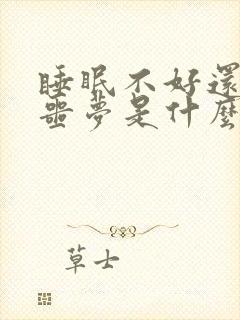 睡眠不好還
噩夢是什麼
草士